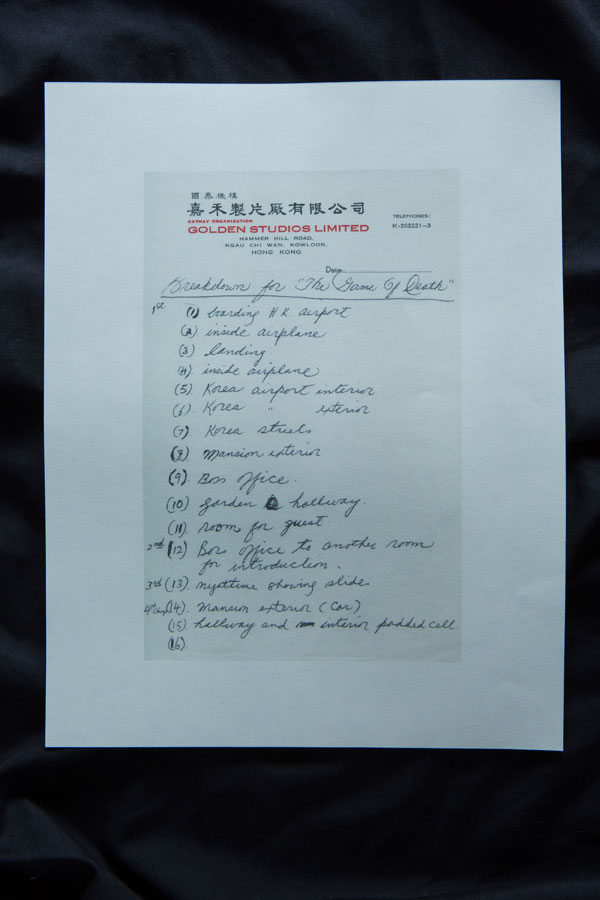 國泰機構
嘉禾製片廠有限公司
CATHAY ORGANISATION
GOLDEN STUDIOS LIMITED
HAMMER HILL ROAD,
NGAU CHI WAN, KOWLOON,
HONG KONG
TELEPHONES:
K-202221-3
Date
Breakdown for "The Game Of Death"
1st (1) boarding H K. airport
(2) inside airplane
(3) landing
(4) inside airplane
(5) Korea airport interior
(6) Korea " exterior
(7) Korea streets
(8) Mansion exterior
(9) Boss office.
(10) garden hallway.
(11) room for guest
2nd (12) Boss office to another room
for introduction.
3rd (13) nighttime showing slide
4th (14). Mansion exterior (Car)
(15) hallway and interior padded cell
(16)